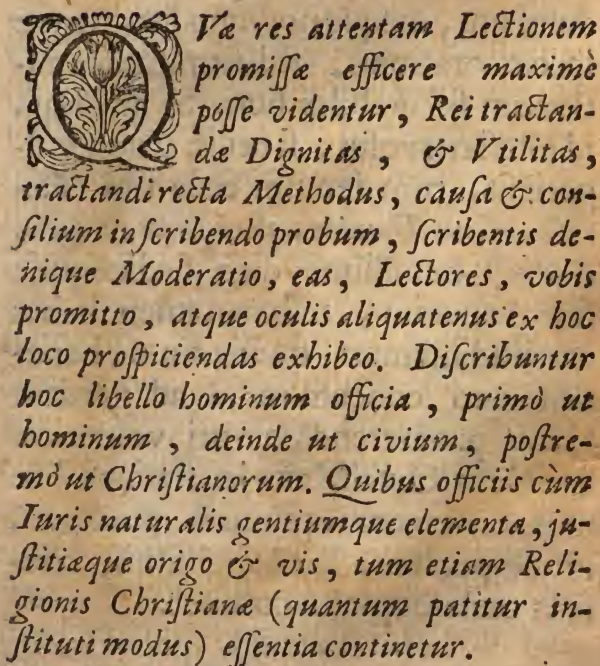 QVæ res attentam Lectionem
promiſſæ efficere maximè
poſſe videntur, Rei tractan-
dæ Dignitas, & Vtilitas,
tractandi recta Methodus, cauſa & con-
ſilium in ſcribendo probum, ſcribentis de-
nique Moderatio, eas, Lectores, vobis
promitto, atque oculis aliquatenus ex hoc
loco proſpiciendas exhibeo. Diſcribuntur
hoc libello hominum officia, primò ut
hominum, deinde ut civium, poſtre-
mò ut Chriſtianorum. Quibus officiis cùm
Iuris naturalis gentiumque elementa, ju-
ſtitiæque origo & vis, tum etiam Reli-
gionis Chriſtianæ (quantum patitur in-
ſtituti modus) eſſentia continetur.